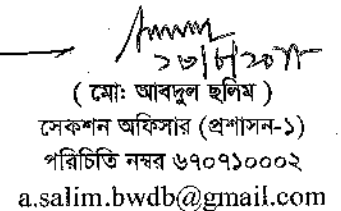 ( মোঃ আবদুল ছলিম )
সেকশন অফিসার (প্রশাসন-১)
পরিচিতি নম্বর ৬৭০৭১০০০২
a.salim.bwdb@gmail.com